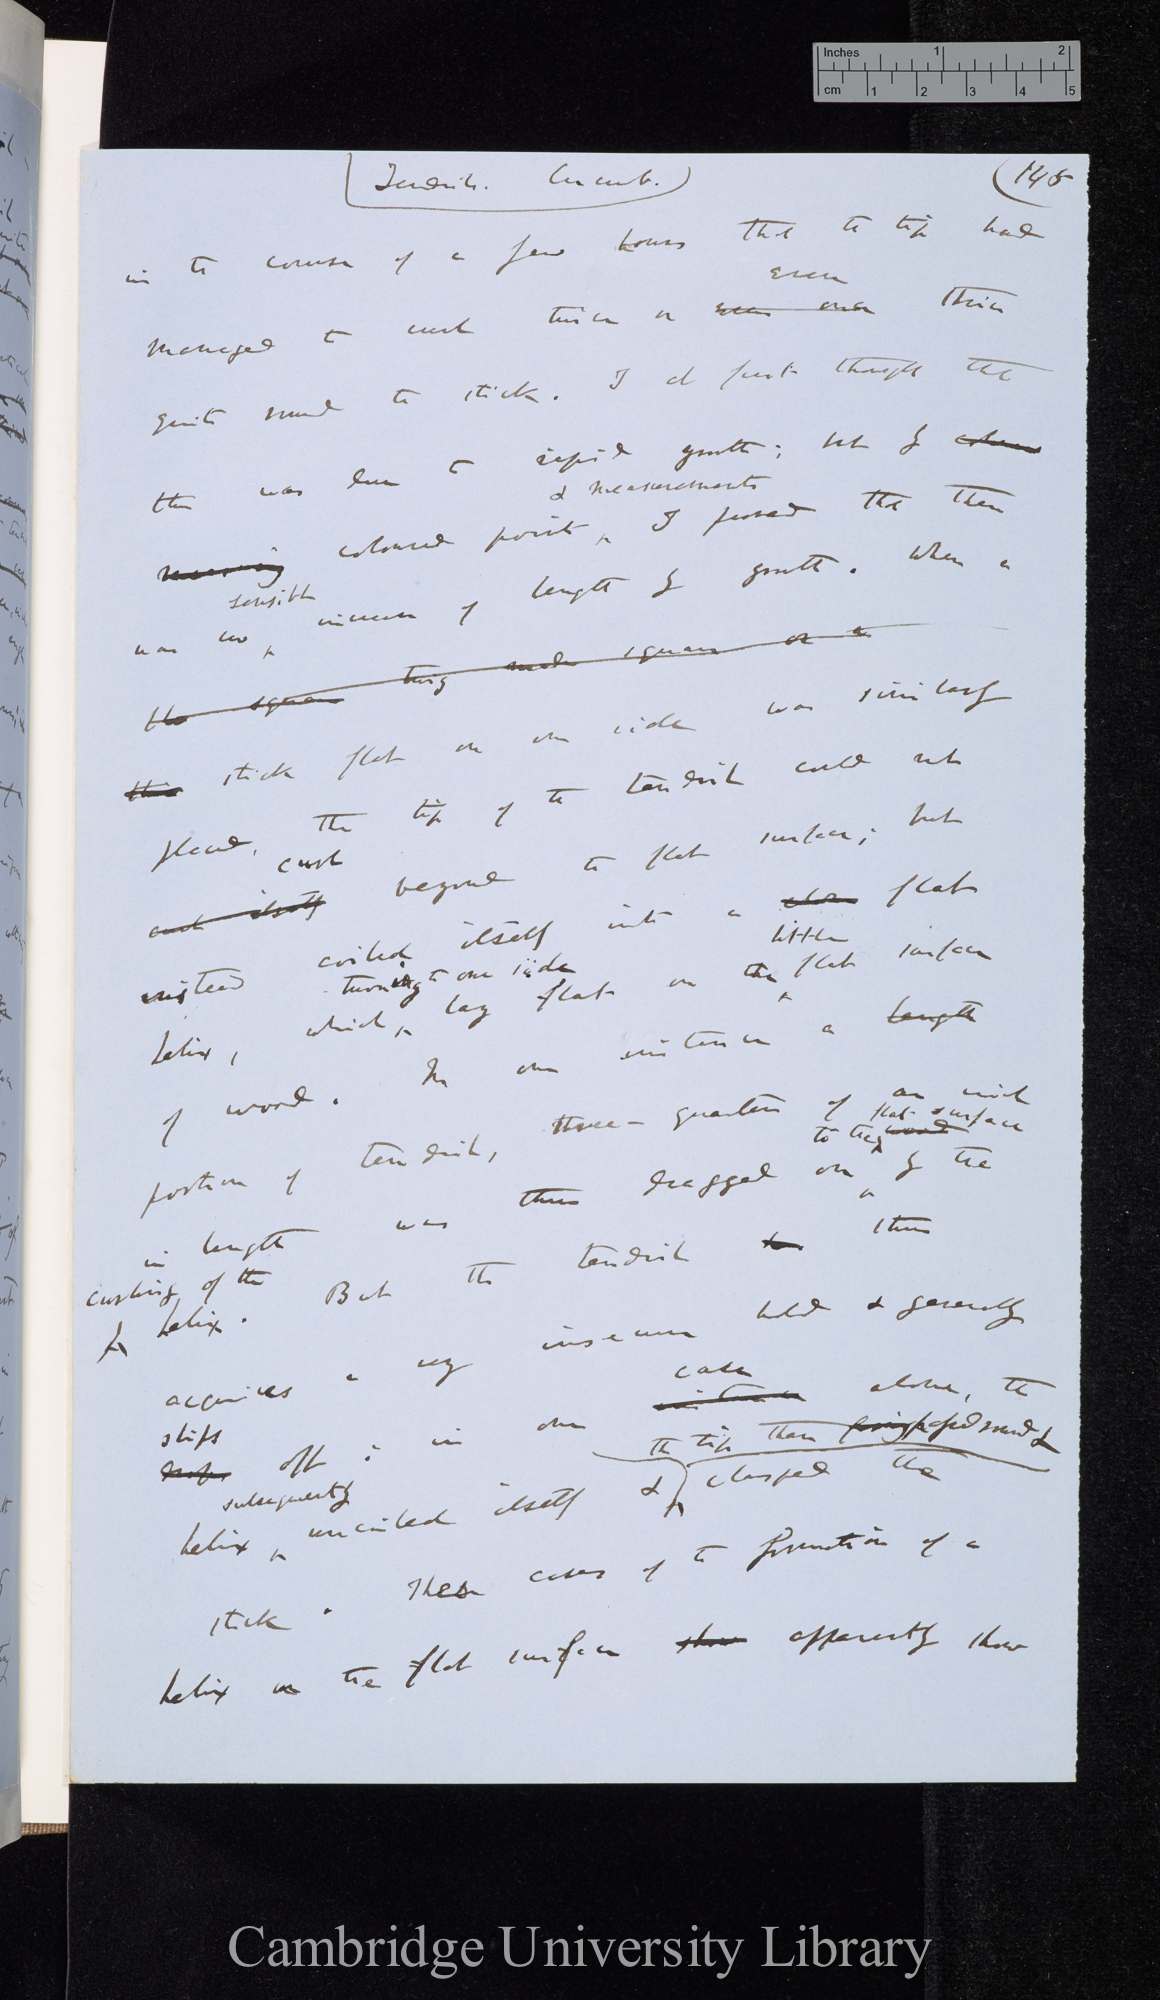 Inches 1 2
cm 1 2 3 4 5
Tendrils. Cucurb. (145
in the course of a few hours that the tip had
even
managed to curl twice or thrice
quite round the stick. I at first thought that
this was due to rapid growth; but by
& measurements
coloured points, I proved that there
sensible
was no increase of length by growth. When a
the square twig made square on a
stick flat on one side was similarly
placed, the tip of the tendril could not
curl
beyond the flat surface; but
instead coiled itself into a flat
turning to one side little
helix, which lay flat on the flat surface
of wood. In one instance a length
portion of tendril, three-quarters of an inch
flat surface
to the wood
in length was thus dragged on by the
curling of the
helix. But the tendril thus
acquires a very insecure hold & generally
case
slips off: in one alone, the
the tip then round &
subsequently
helix uncoiled itself & clasped the
stick. These cases of the formation of a
helix on the flat surface show apparently show
Cambridge University Library